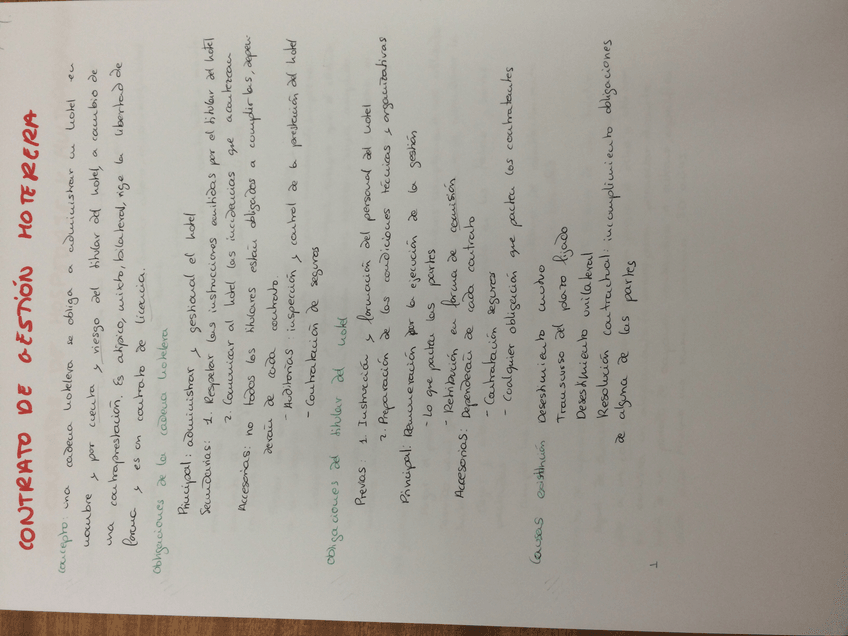 CONTRATO DE GESTIÓN HOTERERA
Concepto: una cadena hotelera se obliga a administrar un hotel en
nombre y por cuenta y riesgo del titular del hotel, a cambio de
una contraprestación. Es atípico, mixto, bilateral, rige la libertad de
forma y es un contrato de licencia.
Obligaciones de la cadena hotelera
Principal: administrar y gestional el hotel
Secundarias: 1. Respetar las instrucciones emitidas por el titular del hotel
2. Comunicar al hotel las incidencias que acontezcan
Accesorias: no todos los titulares están obligados a cumplirlas, depen-
derán de cada contrato.
- Auditorías: inspección y control de la prestación del hotel
- Contratación de seguros
Obligaciones del titular del hotel
Previas: 1. Instrucción y formación del personal del hotel
2. Preparación de las condiciones técnicas y organizativas
Principal: Remuneración por la ejecución de la gestión
- Lo que pactan las partes
- Retribución en forma de comisión
Accesorias: Dependerán de cada contrato
- Contratación seguros
- Cualquier obligación que pactan los contratantes
Causas Desestimiento mutuo
Transcurso del plazo fijado
Desestimiento unilateral
Resolución contractual: incumplimiento obligaciones
de alguna de las partes
1